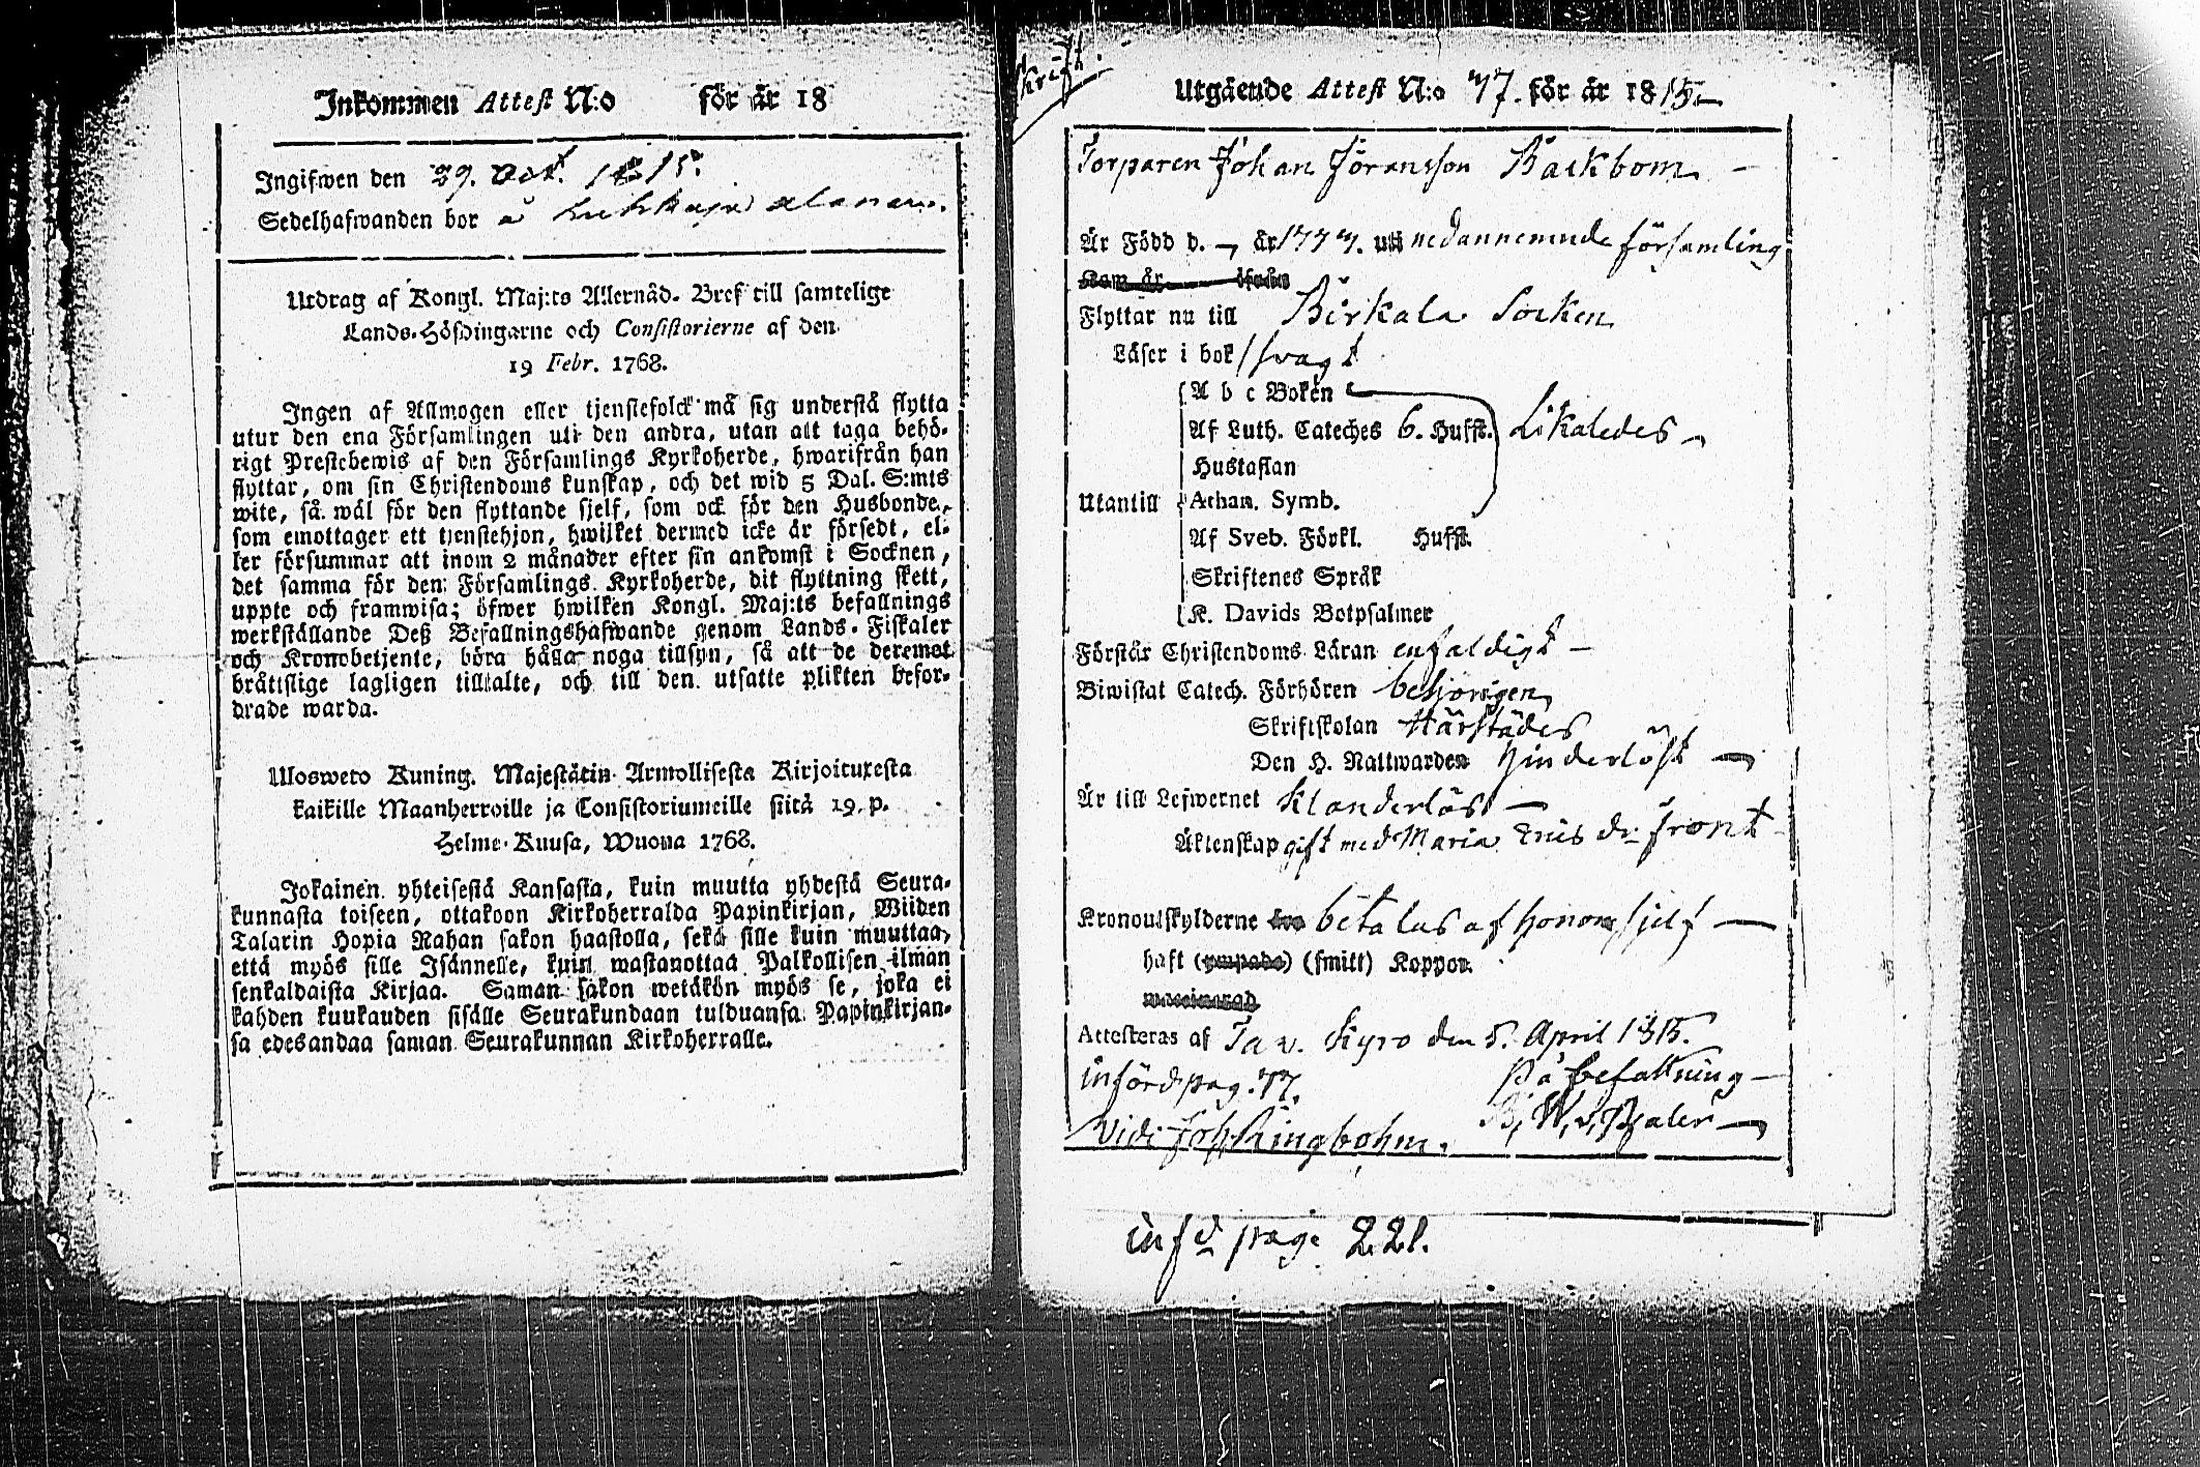 Inkommen Attest N:o för år 18
Ingifwen den 29. Oct. 1815.
Sedelhafwanden bor å
Utdrag af Kongl. Maj:ts Allernåd. Bref till samtelige
Lands-Höfdingarne och Consistorierne af den
19 Febr. 1768.
Ingen af Allmogen eller tjenstefolck må sig understå flytta
utur den ena Församlingen uti den andra, utan att taga behö-
rigt Prestebewis af den Församlings Kyrkoherde, hwarifrån han
flyttar, om sin Christendoms kunskap, och det wid 5 Dal. S:mts
wite, så wäl för den flyttande sjelf, som ock för den Husbonde,
som emottager ett tjenstehjon, hwilket dermed icke är försedt, el-
ler försummar att inom 2 månader efter sin ankomst i Socknen,
det samma för den Församlings Kyrkoherde, dit flyttning skett,
uppte och framwisa; öfwer hwilken Kongl. Maj:ts befallnings
werkställande Deß Befallningshafwande genom Lands-Fiskaler
och Kronobetjente, böra hålla noga tillsyn, så att de deremot
bråttslige lagligen tilltalte, och till den utsatte plikten befor-
drade warda.
Ulosweto Kuning. Majestätin Armollisesta Kirjoituxesta
kaikille Maanherroille ja Consistoriumeille siitä 19. p.
Helme-Kuusa, Wuona 1768.
Jokainen yhteisestä Kansasta, kuin muutta yhdestä Seura-
kunnasta toiseen, ottakoon Kirkoherralda Papinkirjan, Wiiden
Talarin Hopia Rahan sakon haastolla, sekä sille kuin muuttaa,
että myös sille Isännelle, kuin wastanottaa Palkollisen ilman
senkaldaista Kirjaa. Saman sakon wetäkön myös se, joka ei
kahden kuukauden sisälle Seurakundaan tulduansa Papinkirjan-
sa edesandaa saman Seurakunnan Kirkoherralle.
Utgående Attest N:o 77. för år 1815.
Torparen Johan Jöransson Backbom
Är Född d. – år 1777. uti nedannemnde församling
Kom år ifrån
Flyttar nu till Birkala Socken
Läser i bok svagt
A b c Boken
Af Luth. Cateches 6. Hufst. Likaledes
Hustaflan
Utantill Athan. Symb.
Af Sveb. Förkl. Hufst.
Skriftenes Språk
K. Davids Botpsalmer
Förstår Christendoms Läran enfaldigt
Biwistat Catech. Förhören behörigen
Skriftskolan Härstädes
Den H. Nattwarden hinderlöst
Är till Lefwernet klanderlös
Äktenskap gift med Maria Eriks dr front
Kronoutskylderne betalas af honom sjelf
haft (ympade) (smitt) Koppor.
waccinerad
Attesteras af Tav. Kyro den 5. April 1815.
införd pag. 77. På befallning
Vidi Joh. Ringbohm.
infd pag. 221.